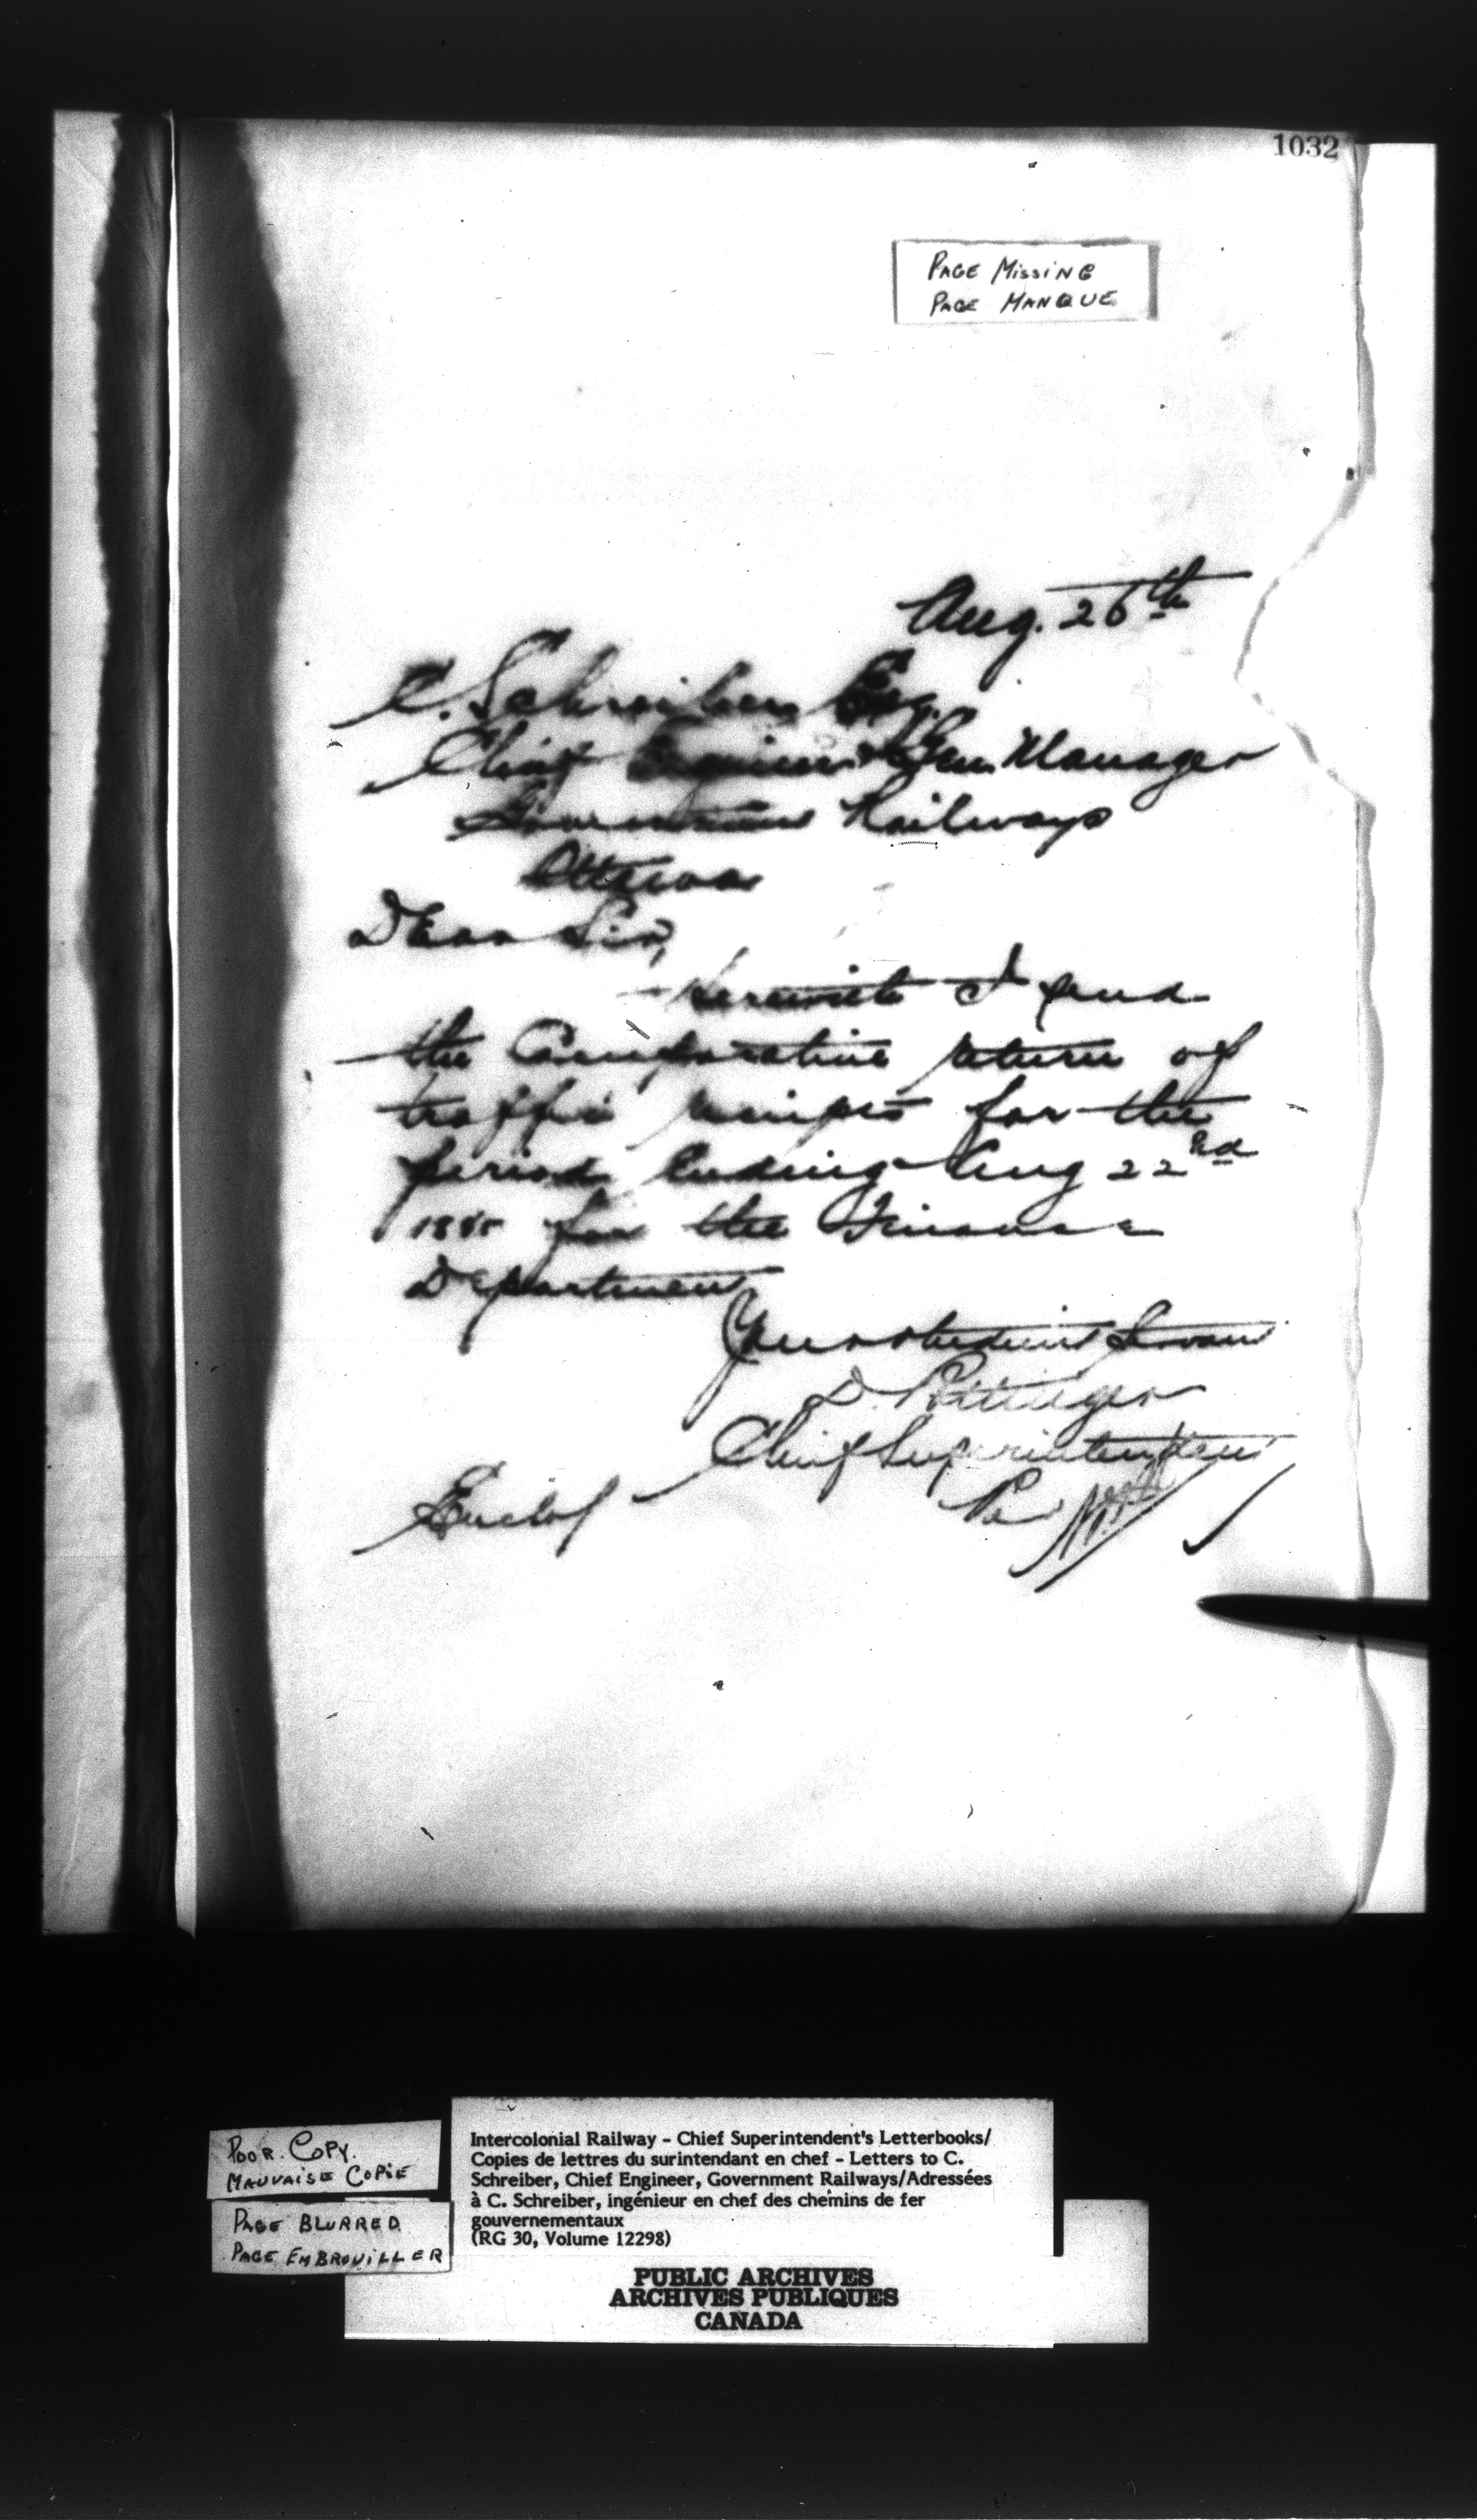 1032
PAGE MISSING
PAGE MANQUE
Aug. 26th
C. Schreiber Esq.
Chief Engineer & Gen. Manager
Government Railways
Ottawa
Dear Sir,
Herewith I send
the Comparative return of
traffic receipts for the
period ending Aug 22nd
1885 for the Finance
Department
Your obedient Servant
D. Pottinger
Chief Superintendent
Per
Enclos
POOR. COPY.
MAUVAISE COPIE
PAGE BLURRED
PAGE EMBROUILLER
Intercolonial Railway - Chief Superintendent's Letterbooks/
Copies de lettres du surintendant en chef - Letters to C.
Schreiber, Chief Engineer, Government Railways/Adressées
à C. Schreiber, ingénieur en chef des chemins de fer
gouvernementaux
(RG 30, Volume 12298)
PUBLIC ARCHIVES
ARCHIVES PUBLIQUES
CANADA